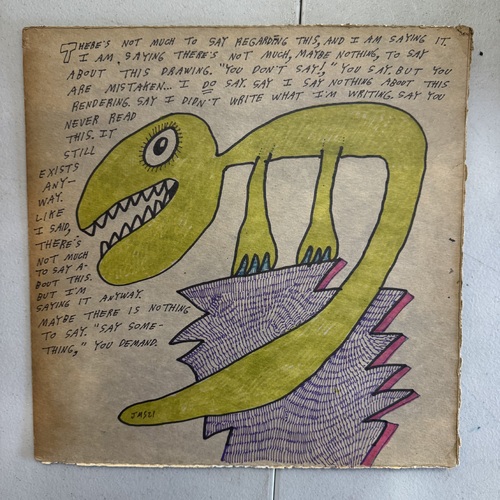 THERE'S NOT MUCH TO SAY REGARDING THIS, AND I AM SAYING IT.
I AM SAYING THERE'S NOT MUCH, MAYBE NOTHING, TO SAY
ABOUT THIS DRAWING. "YOU DON'T SAY!," YOU SAY. BUT YOU
ARE MISTAKEN... I DO SAY. SAY I SAY NOTHING ABOUT THIS
RENDERING. SAY I DIDN'T WRITE WHAT I'M WRITING. SAY YOU
NEVER READ
THIS. IT
STILL
EXISTS
ANY-
WAY.
LIKE
I SAID,
THERE'S
NOT MUCH
TO SAY A-
BOUT THIS.
BUT I'M
SAYING IT ANYWAY.
MAYBE THERE IS NOTHING
TO SAY. "SAY SOME-
THING," YOU DEMAND.